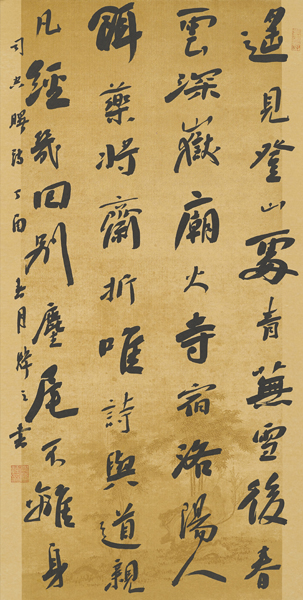 遙見登山處青蕪雪後春
雲深嶽廟火寺宿洛陽人
餌藥將齋折唯詩與道親
凡經幾回別麈尾不離身
司空曙詩丁酉春月之書